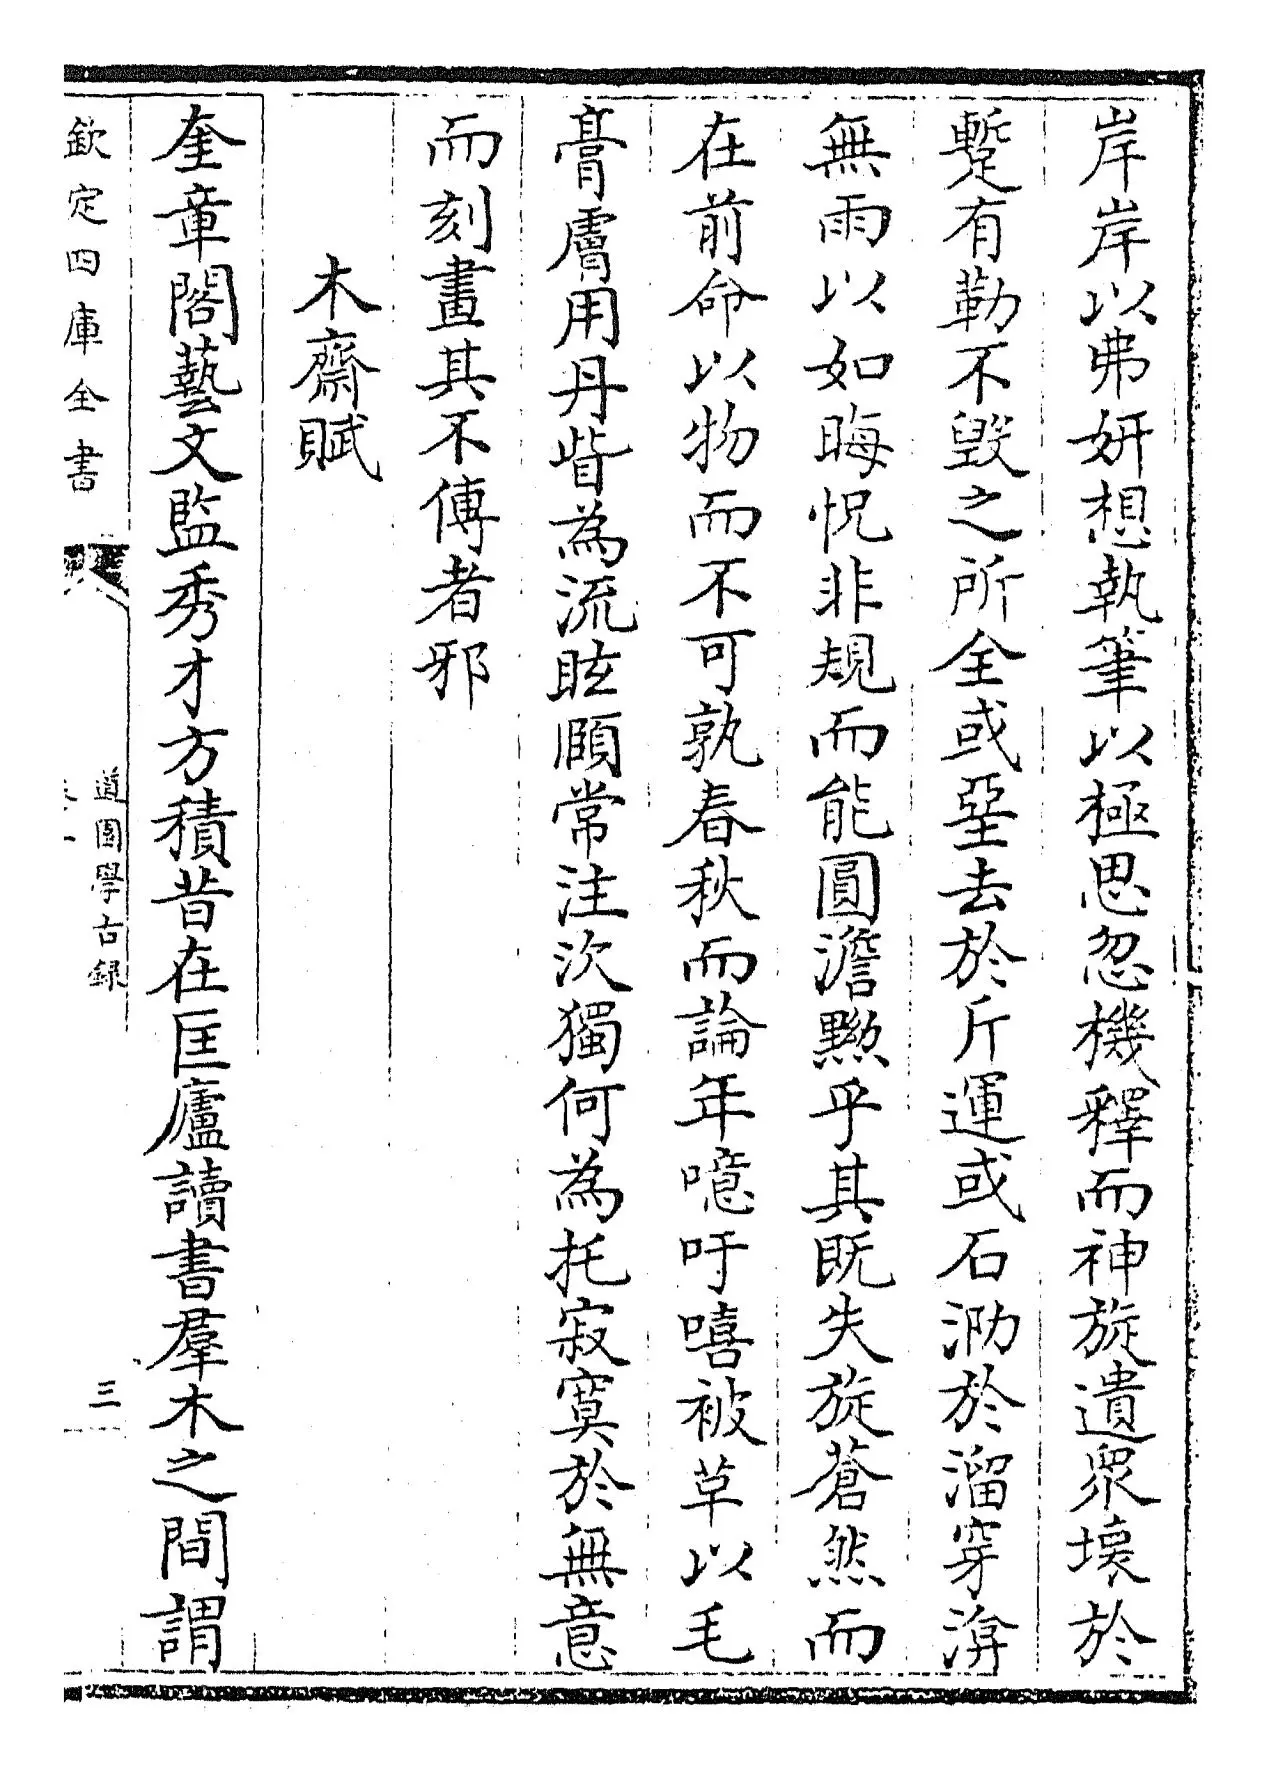 岸岸以弗妍想執筆以極思忽機釋而神旋遺衆壞於
蹔有勒不毀之所全或堊去於斤運或石泐於溜穿渰
無雨以如晦怳非規而能圓澹黝乎其既失旋蒼然而
在前命以物而不可孰春秋而論年噫吁嘻被草以毛
膏膚用丹眥為流眩願常注次獨何為托寂寞於無意
而刻畫其不傳者邪
木齋賦
奎章閣藝文監秀才方積昔在匡廬讀書羣木之間謂
欽定四庫全書
道園學古録
三